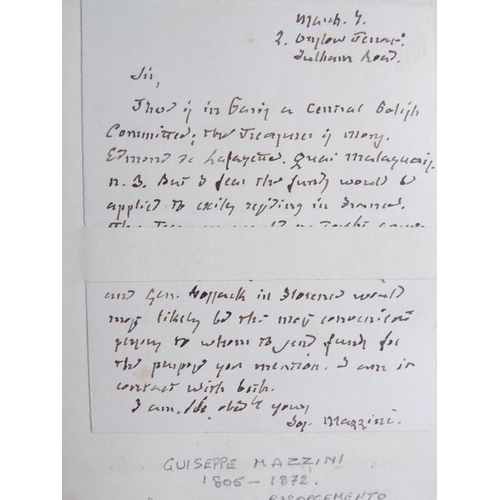 March. 7.
2. Onslow Terrace.
Fulham Road.
Sir,
There is in Paris a Central Polish
Committee; the Treasurer is Monsr.
Edmond de Lafayette. Quai Malaquais,
n. 3. But I fear the funds would be
applied to exiles residing in France.
and Gen. in Florence would
most likely be the most convenient
persons to whom to send funds for
the purpose you mention. I am in
contact with both.
I am, Sir, yours,
Jos. Mazzini.
GUISEPPE MAZZINI
1805 - 1872.
RISORGEMENTO